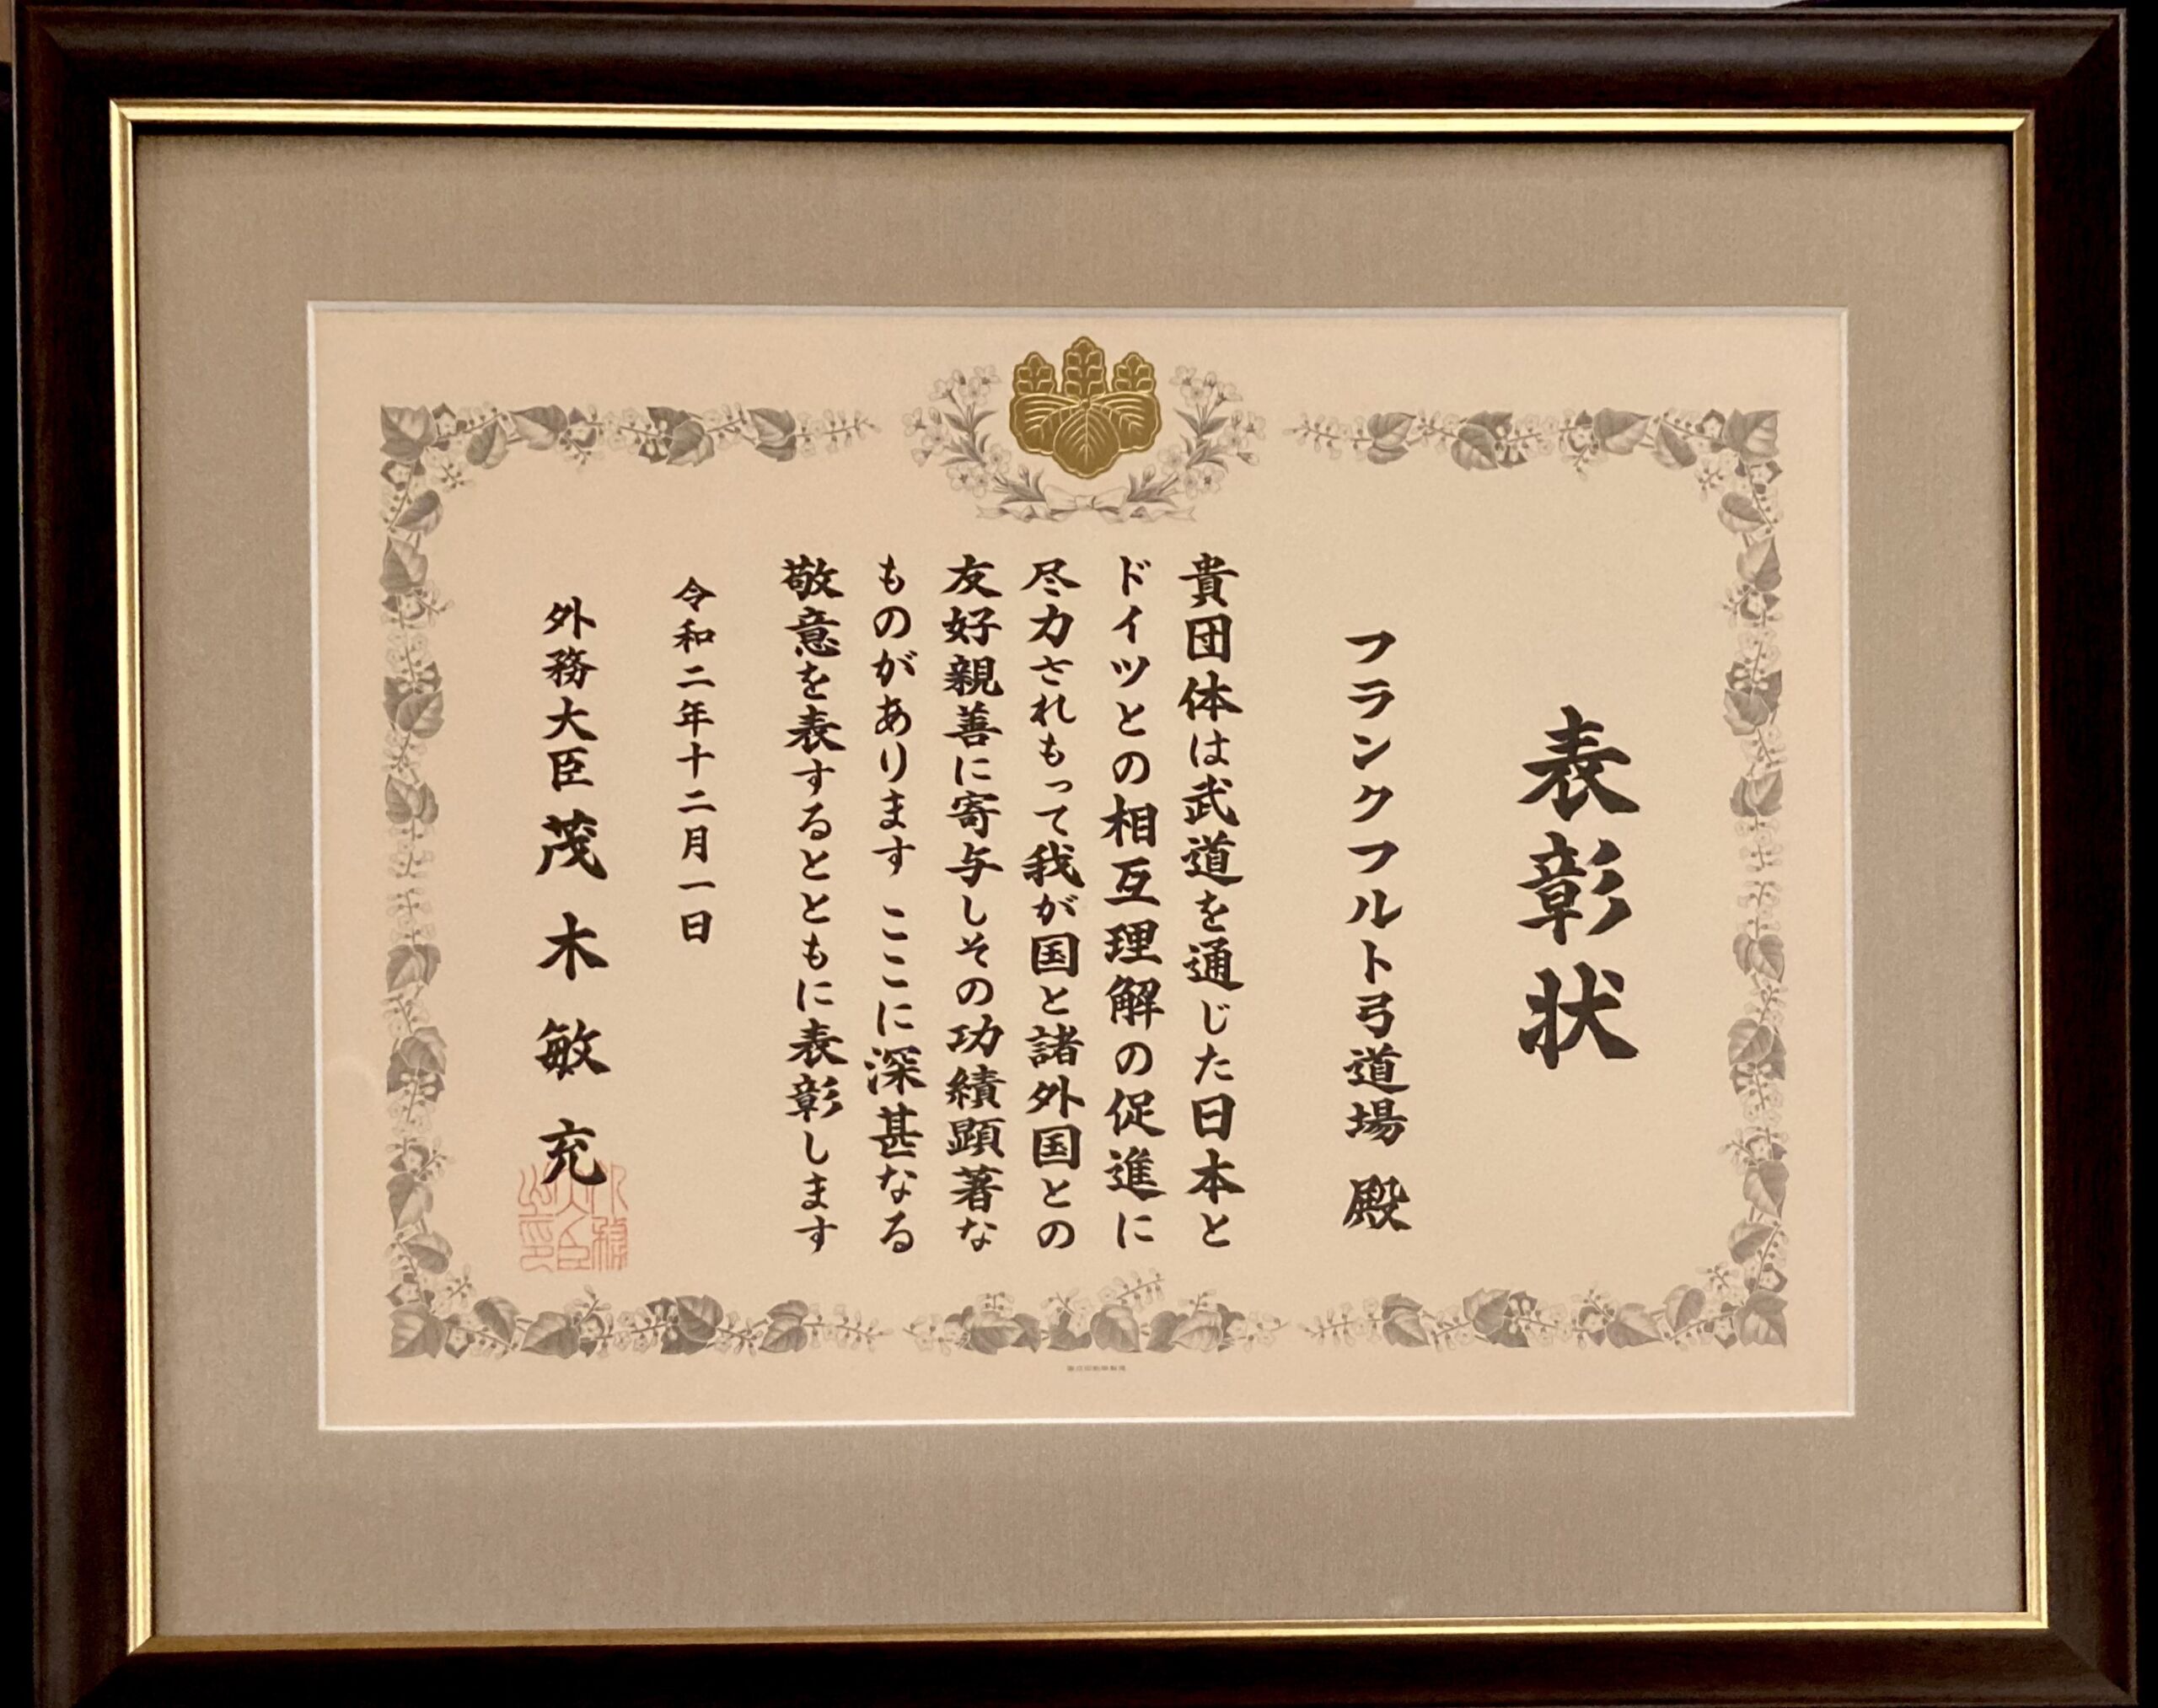 表彰状
フランクフルト弓道場 殿
貴団体は武道を通じた日本と
ドイツとの相互理解の促進に
尽力されもって我が国と諸外国との
友好親善に寄与しその功績顕著な
ものがあります ここに深甚なる
敬意を表するとともに表彰します
令和二年十二月一日
外務大臣 茂木敏充
外務大臣之印